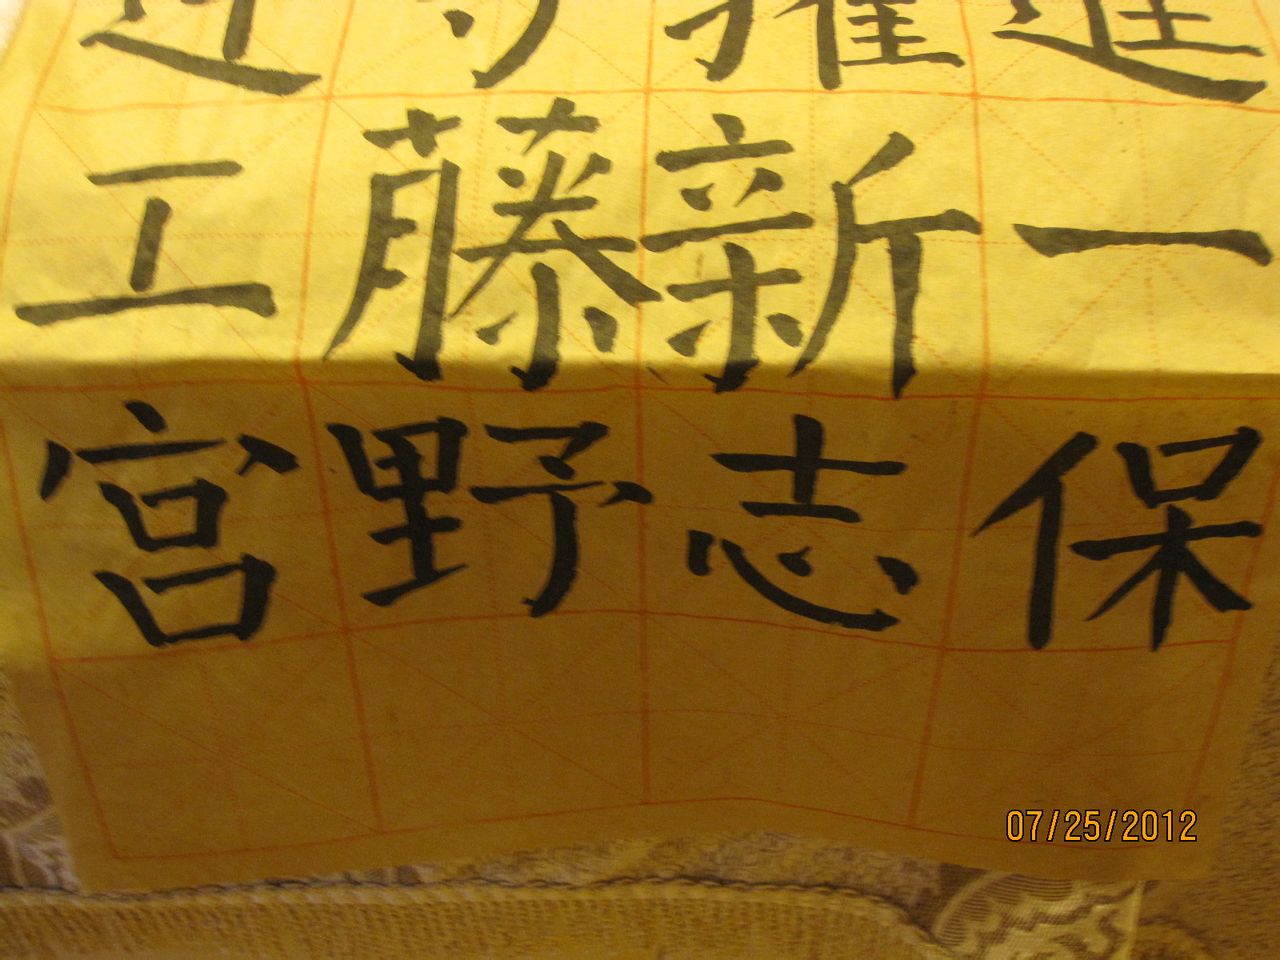 推進
工藤新一
宮野志保
07/25/2012